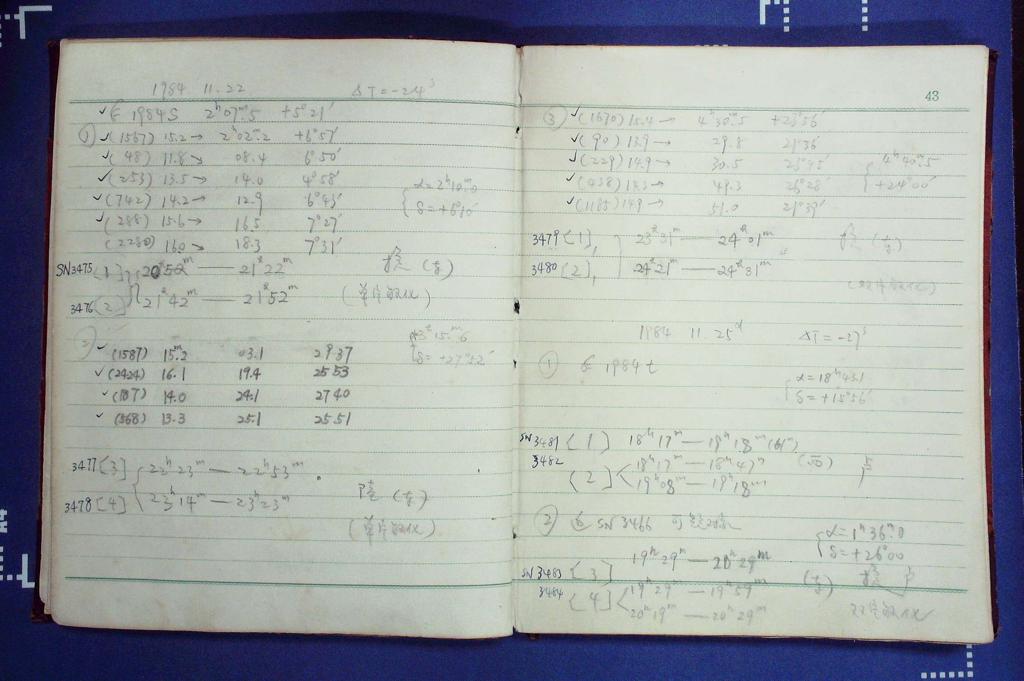 1984 11.22 ΔT=-24ˢ
✓ 1984S 2ʰ07ᵐ.5 +5°21′
① ✓(1567) 15.2→ 2ʰ02ᵐ.2 +6°57′
✓(48) 11.8→ 08.4 6°50′
✓(253) 13.5→ 14.0 4°58′
✓(742) 14.2→ 12.9 6°43′
✓(288) 15.6→ 16.5 7°27′
(2280) 16.0→ 18.3 7°31′
{α=2ʰ10ᵐ.0
δ=+6°10′
SN3475 [1] 20ʰ52ᵐ — 21ʰ22ᵐ
3476 [2] 21ʰ42ᵐ — 21ʰ52ᵐ
②
✓(1587) 15ᵐ.2 03.1 2937
✓(2424) 16.1 19.4 2553
✓(107) 14.0 24.1 2740
✓(568) 13.3 25.1 2551
3ʰ15ᵐ.6
δ=+27°52′
3477 [3] 22ʰ23ᵐ — 22ʰ53ᵐ
3478 [4] 23ʰ14ᵐ — 23ʰ23ᵐ
43
③ ✓(1670) 15.4→ 4ʰ30ᵐ.5 +23°56′
✓(90) 13.9→ 29.8 21°36′
✓(229) 14.9→ 30.5 23°45′
✓(438) 14.3→ 49.3 26°28′
✓(1185) 14.9→ 51.0 21°39′
{4ʰ40ᵐ.5
+24°00′
3479 [1], 23ʰ31ᵐ — 24ʰ01ᵐ
3480 [2], 24ʰ21ᵐ — 24ʰ31ᵐ
1984 11.25ᵈ ΔT=-27ˢ
① 1984t
{α=18ʰ43.1
δ=+15°56′
SN3481 [1] 18ʰ17ᵐ — 19ʰ18ᵐ(61ᵐ)
3482 [2] <18ʰ17ᵐ — 18ʰ47ᵐ
19ʰ08ᵐ — 19ʰ18ᵐ
② SN3466 可
{α=1ʰ36ᵐ.0
δ=+26°00
SN3483 [3] 19ʰ29ᵐ — 20ʰ29ᵐ
3484 [4] <19ʰ29ᵐ — 19ʰ59ᵐ
20ʰ19ᵐ — 20ʰ29ᵐ